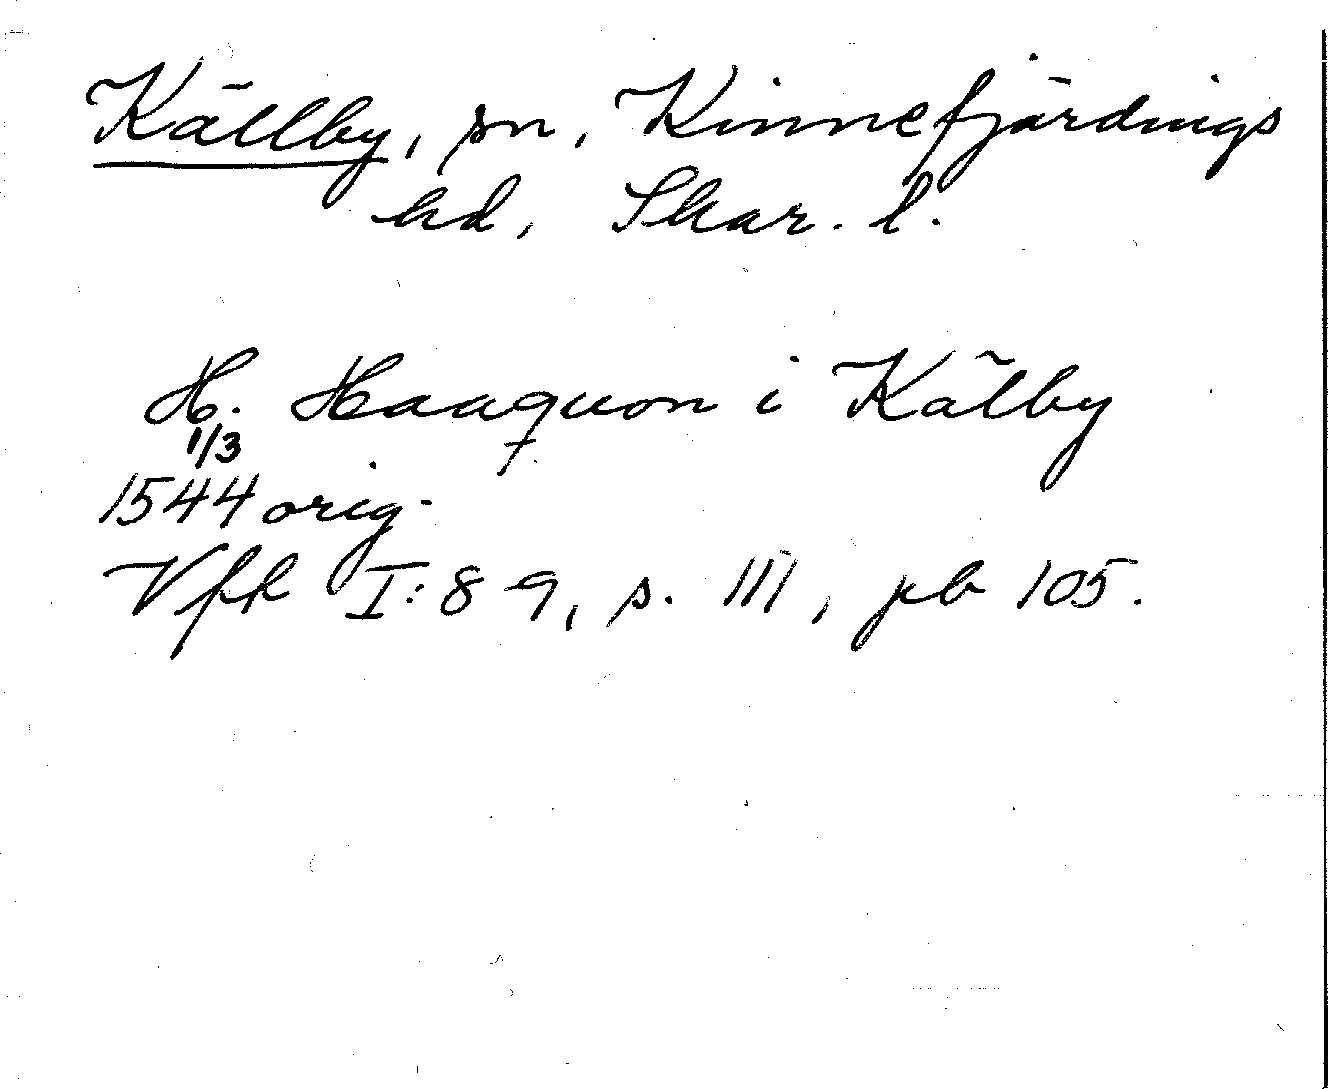 Källby, sn, Kinnefjärdings
hd, Skar. l.
H. Haaquon i Kälby
1/3
1544 orig.
Vfk I: 8-9, s. 111, pb 105.